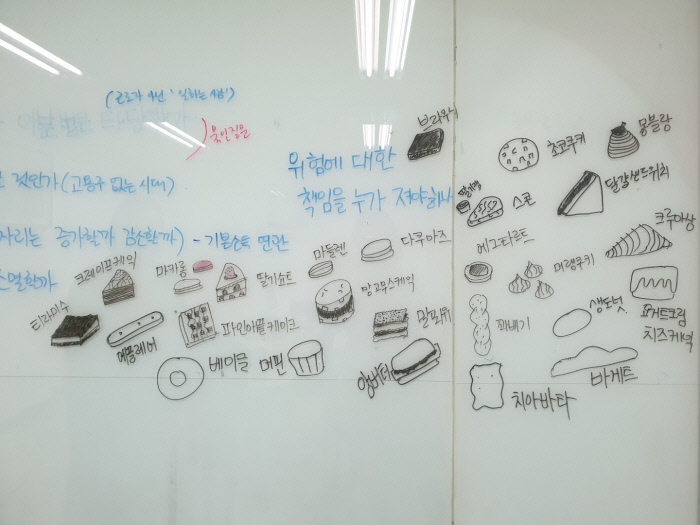 (근로자 아닌 '일하는 사람')
위험에 대한
책임을 누가 져야하나
것인가 (고용주 없는 시대)
자리는 증가할까 감소할까) - 기본소득 연관
소멸할까
브라우니
초코쿠키
몽블랑
스콘
달걀샌드위치
크루아상
마들렌
다쿠아즈
에그타르트
머랭쿠키
크레이프케익
마카롱
딸기쇼트
망고무스케익
티라미수
에끌레어
파인애플케이크
밀푀유
꽈배기
생도넛
요거트크림
치즈케익
베이글
머핀
앙버터
치아바타
바게트